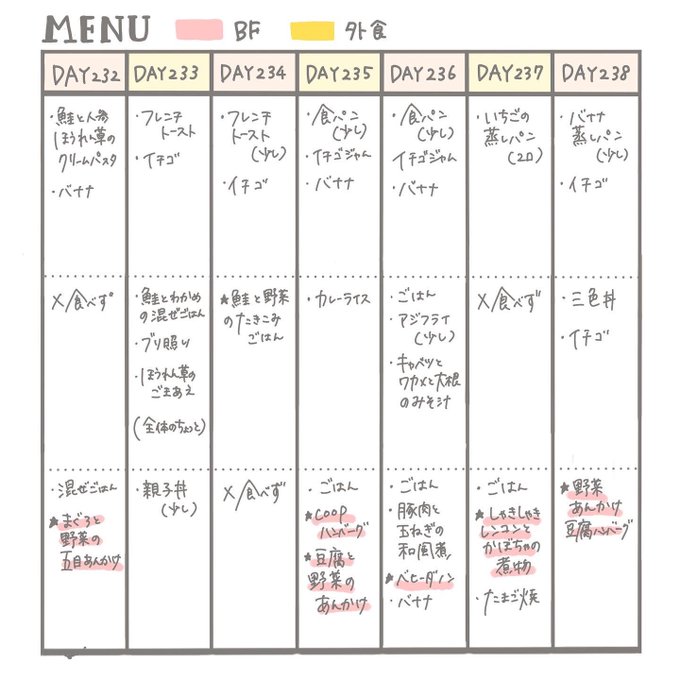 MENU BF 外食
DAY232 DAY233 DAY234 DAY235 DAY236 DAY237 DAY238
・鮭と人参
ほうれん草の
クリームパスタ
・バナナ
・フレンチ
トースト
・イチゴ
・フレンチ
トースト
(少し)
・イチゴ
・食パン
(少し)
・イチゴジャム
・バナナ
・食パン
(少し)
イチゴジャム
・バナナ
・いちごの
蒸しパン
(2口)
・バナナ
蒸しパン
(少し)
・イチゴ
×/食べず
・鮭とわかめ
の混ぜごはん
・ブリ照り
・ほうれん草の
ごまあえ
(全体のちょっと)
★鮭と野菜
のたきこみ
ごはん
・カレーライス
・ごはん
・アジフライ
(少し)
・キャベツと
ワカメと大根
のみそ汁
×/食べず
・三色丼
・イチゴ
・混ぜごはん
★まぐろと
野菜の
五目あんかけ
・親子丼
(少し)
×/食べず
・ごはん
★COOP
ハンバーグ
★豆腐と
野菜の
あんかけ
・ごはん
・豚肉と
玉ねぎの
和風煮
★ベビーダノン
・バナナ
・ごはん
★しゃきしゃき
レンコンと
かぼちゃの
煮物
・たまご焼
★野菜
あんかけ
豆腐ハンバーグ